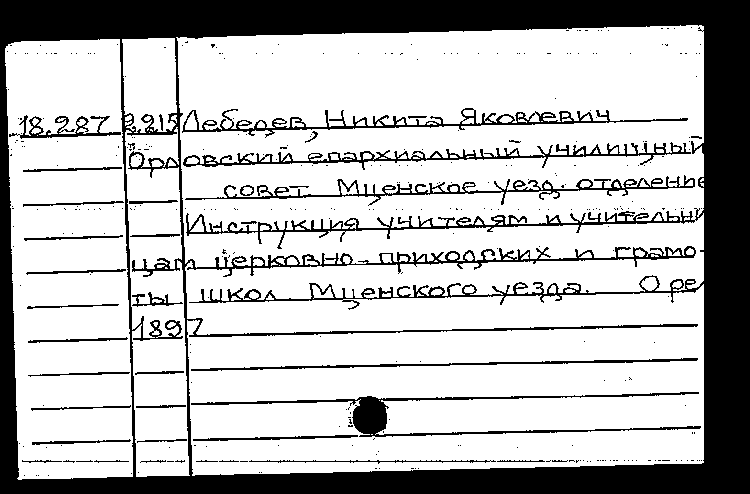 18.287 2.215 Лебедев, Никита Яковлевич
Орловский епархиальный училищный
совет Мценское уезд. отделение
Инструкция учителям и учительни
цам церковно-приходских и грамо-
ты школ Мценского уезда. Орел
1897